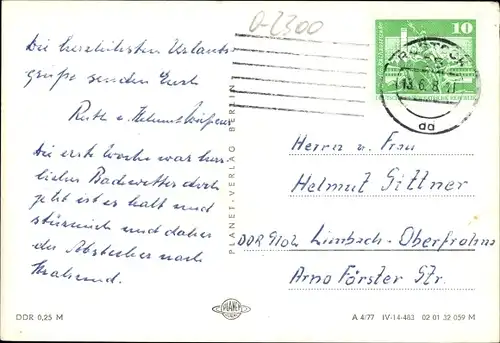 0-2300
Die herzlichsten Urlaubs-
grüße senden Euch
Ruth u. Helmut
Die erste Woche war herr-
liches Badewetter doch
jetzt ist es kalt und
stürmisch und daher
der Abstecher nach
Stralsund.
PLANET-VERLAG BERLIN
10
13.6.8
aa
Herrn u. Frau
Helmut Sittner
DDR 9102 Limbach-Oberfrohna
Arno Förster Str.
DDR 0,25 M
PLANET
A 4/77 IV-14-483 02 01 32 059 M